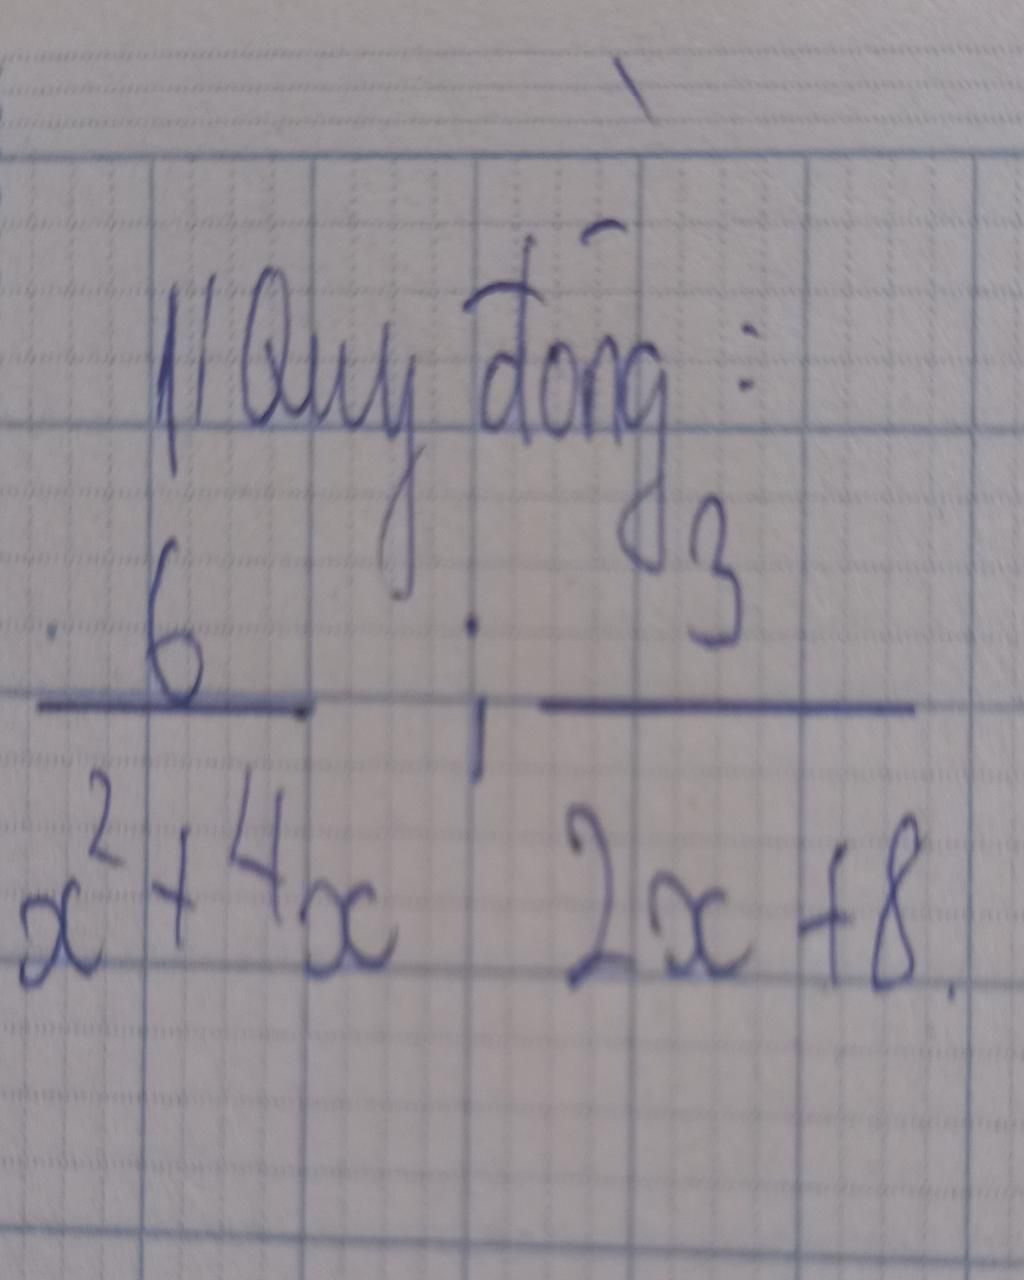 1/ Quy đồng :
6 ; 3
x²+4x 2x+8.